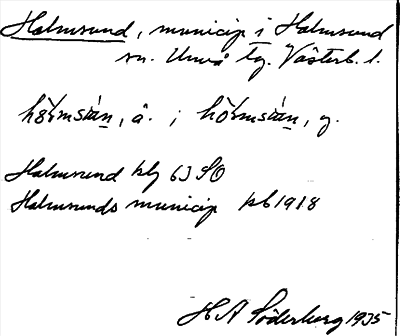 Holmsund, municip i Holmsund
sn. Umeå tg. Västerb. l.
hölmsián, å. ; hölmsián, y.
Holmsund kbl 63 SO
Holmsunds municip pk 1918
H A Söderberg 1935